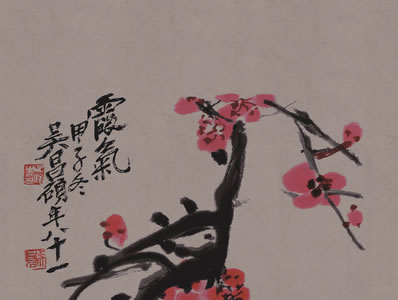 霞氣
甲子冬
吳昌碩年八十一